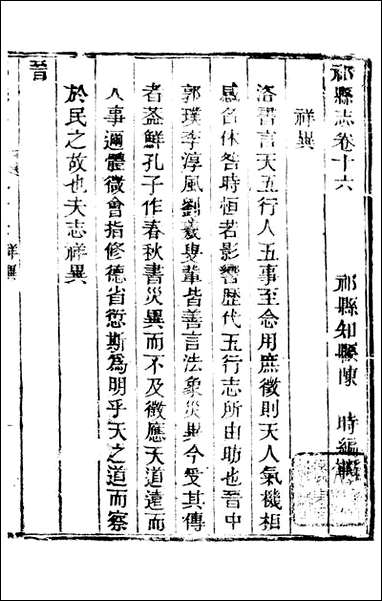 祁縣志卷十六
祁縣知縣陳 時編輯
祥異
洛書言天五行人五事至念用庶徵則天人氣機相
感名休咎時恒若影響歷代五行志所由昉也晉中
郭璞李淳風劉羲叟輩皆善言法象災異今受其傳
者葢鮮孔子作春秋書災異而不及徵應天道遠而
人事邇體微會指修德省愆斯為明乎天之道而察
於民之故也夫志祥異
晉
祥異